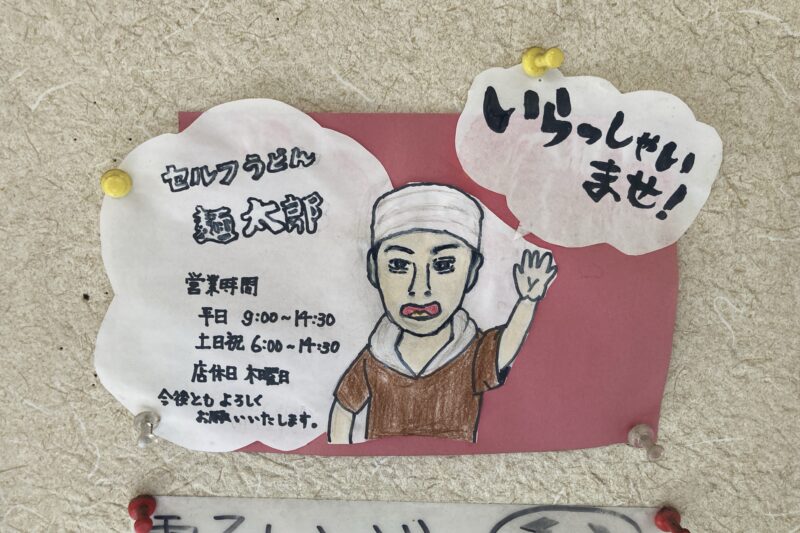 いらっしゃい
ませ!
セルフうどん
麺太郎
営業時間
平日 9:00~14:30
土日祝 6:00~14:30
店休日 木曜日
今後とも よろしく
お願いいたします。